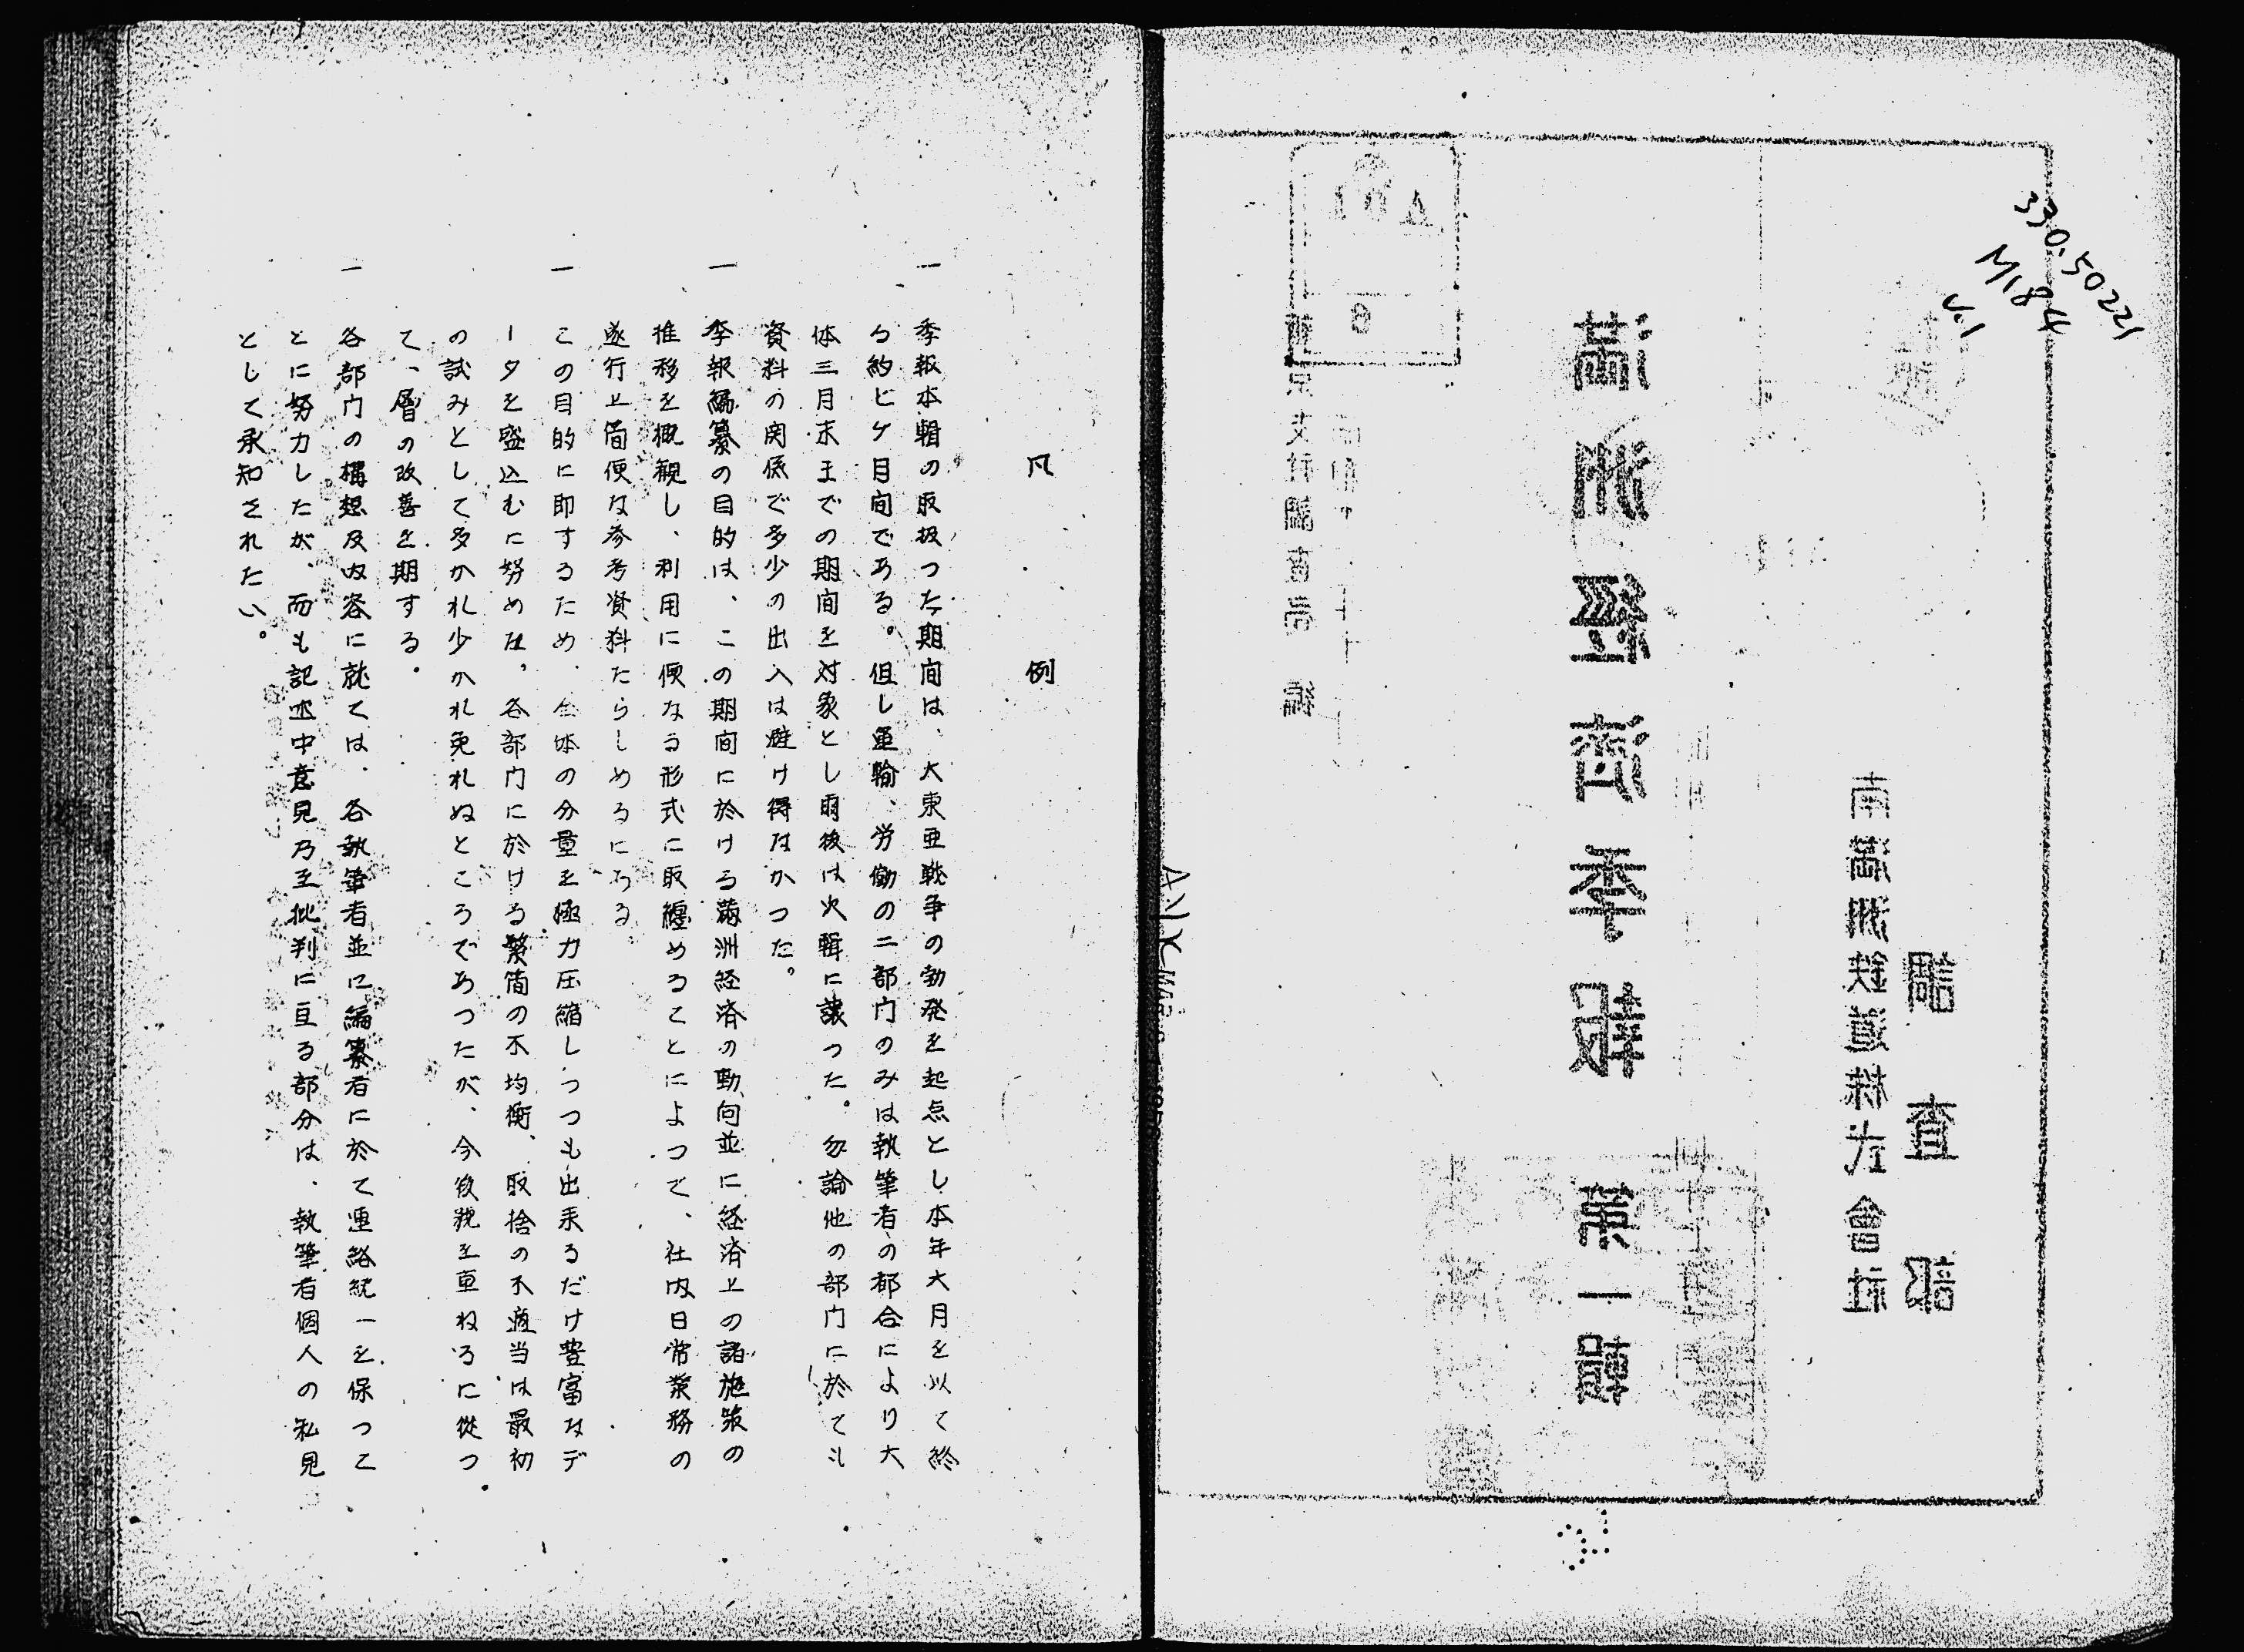 330.50221
M184
v.1
調査部
南満洲鉄道株式會社
満洲經濟季報 第一輯
凡例
一 季報本輯の取扱つた期間は、大東亜戦争の勃発を起点とし本年六月を以て終
る約七ケ月間である。但し運輸、労働の二部门のみは執筆者の都合により大
体三月末までの期間を対象とし爾後は次輯に譲つた。勿論他の部门に於ても
資料の関係で多少の出入は避け得なかつた。
一 季報編纂の目的は、この期間に於ける満洲経済の動向並に経済上の諸施策の
推移を概観し、利用に便なる形式に取纏めることによつて、社内日常業務の
遂行上簡便な参考資料たらしめるにある
一 この目的に即するため、全体の分量を極力圧縮しつつも出来るだけ豊富なデ
ータを盛込むに努めた，各部门に於ける繁簡の不均衡、取捨の不適当は最初
の試みとして多かれ少かれ免れぬところであつたが、今後号を重ねるに従つ
て、層の改善を期する。
一 各部门の構想及内容に就ては、各執筆者並に編纂者に於て連絡統一を保つこ
とに努力したが、而も記述中意見乃至批判に亘る部分は、執筆者個人の私見
として承知されたい。